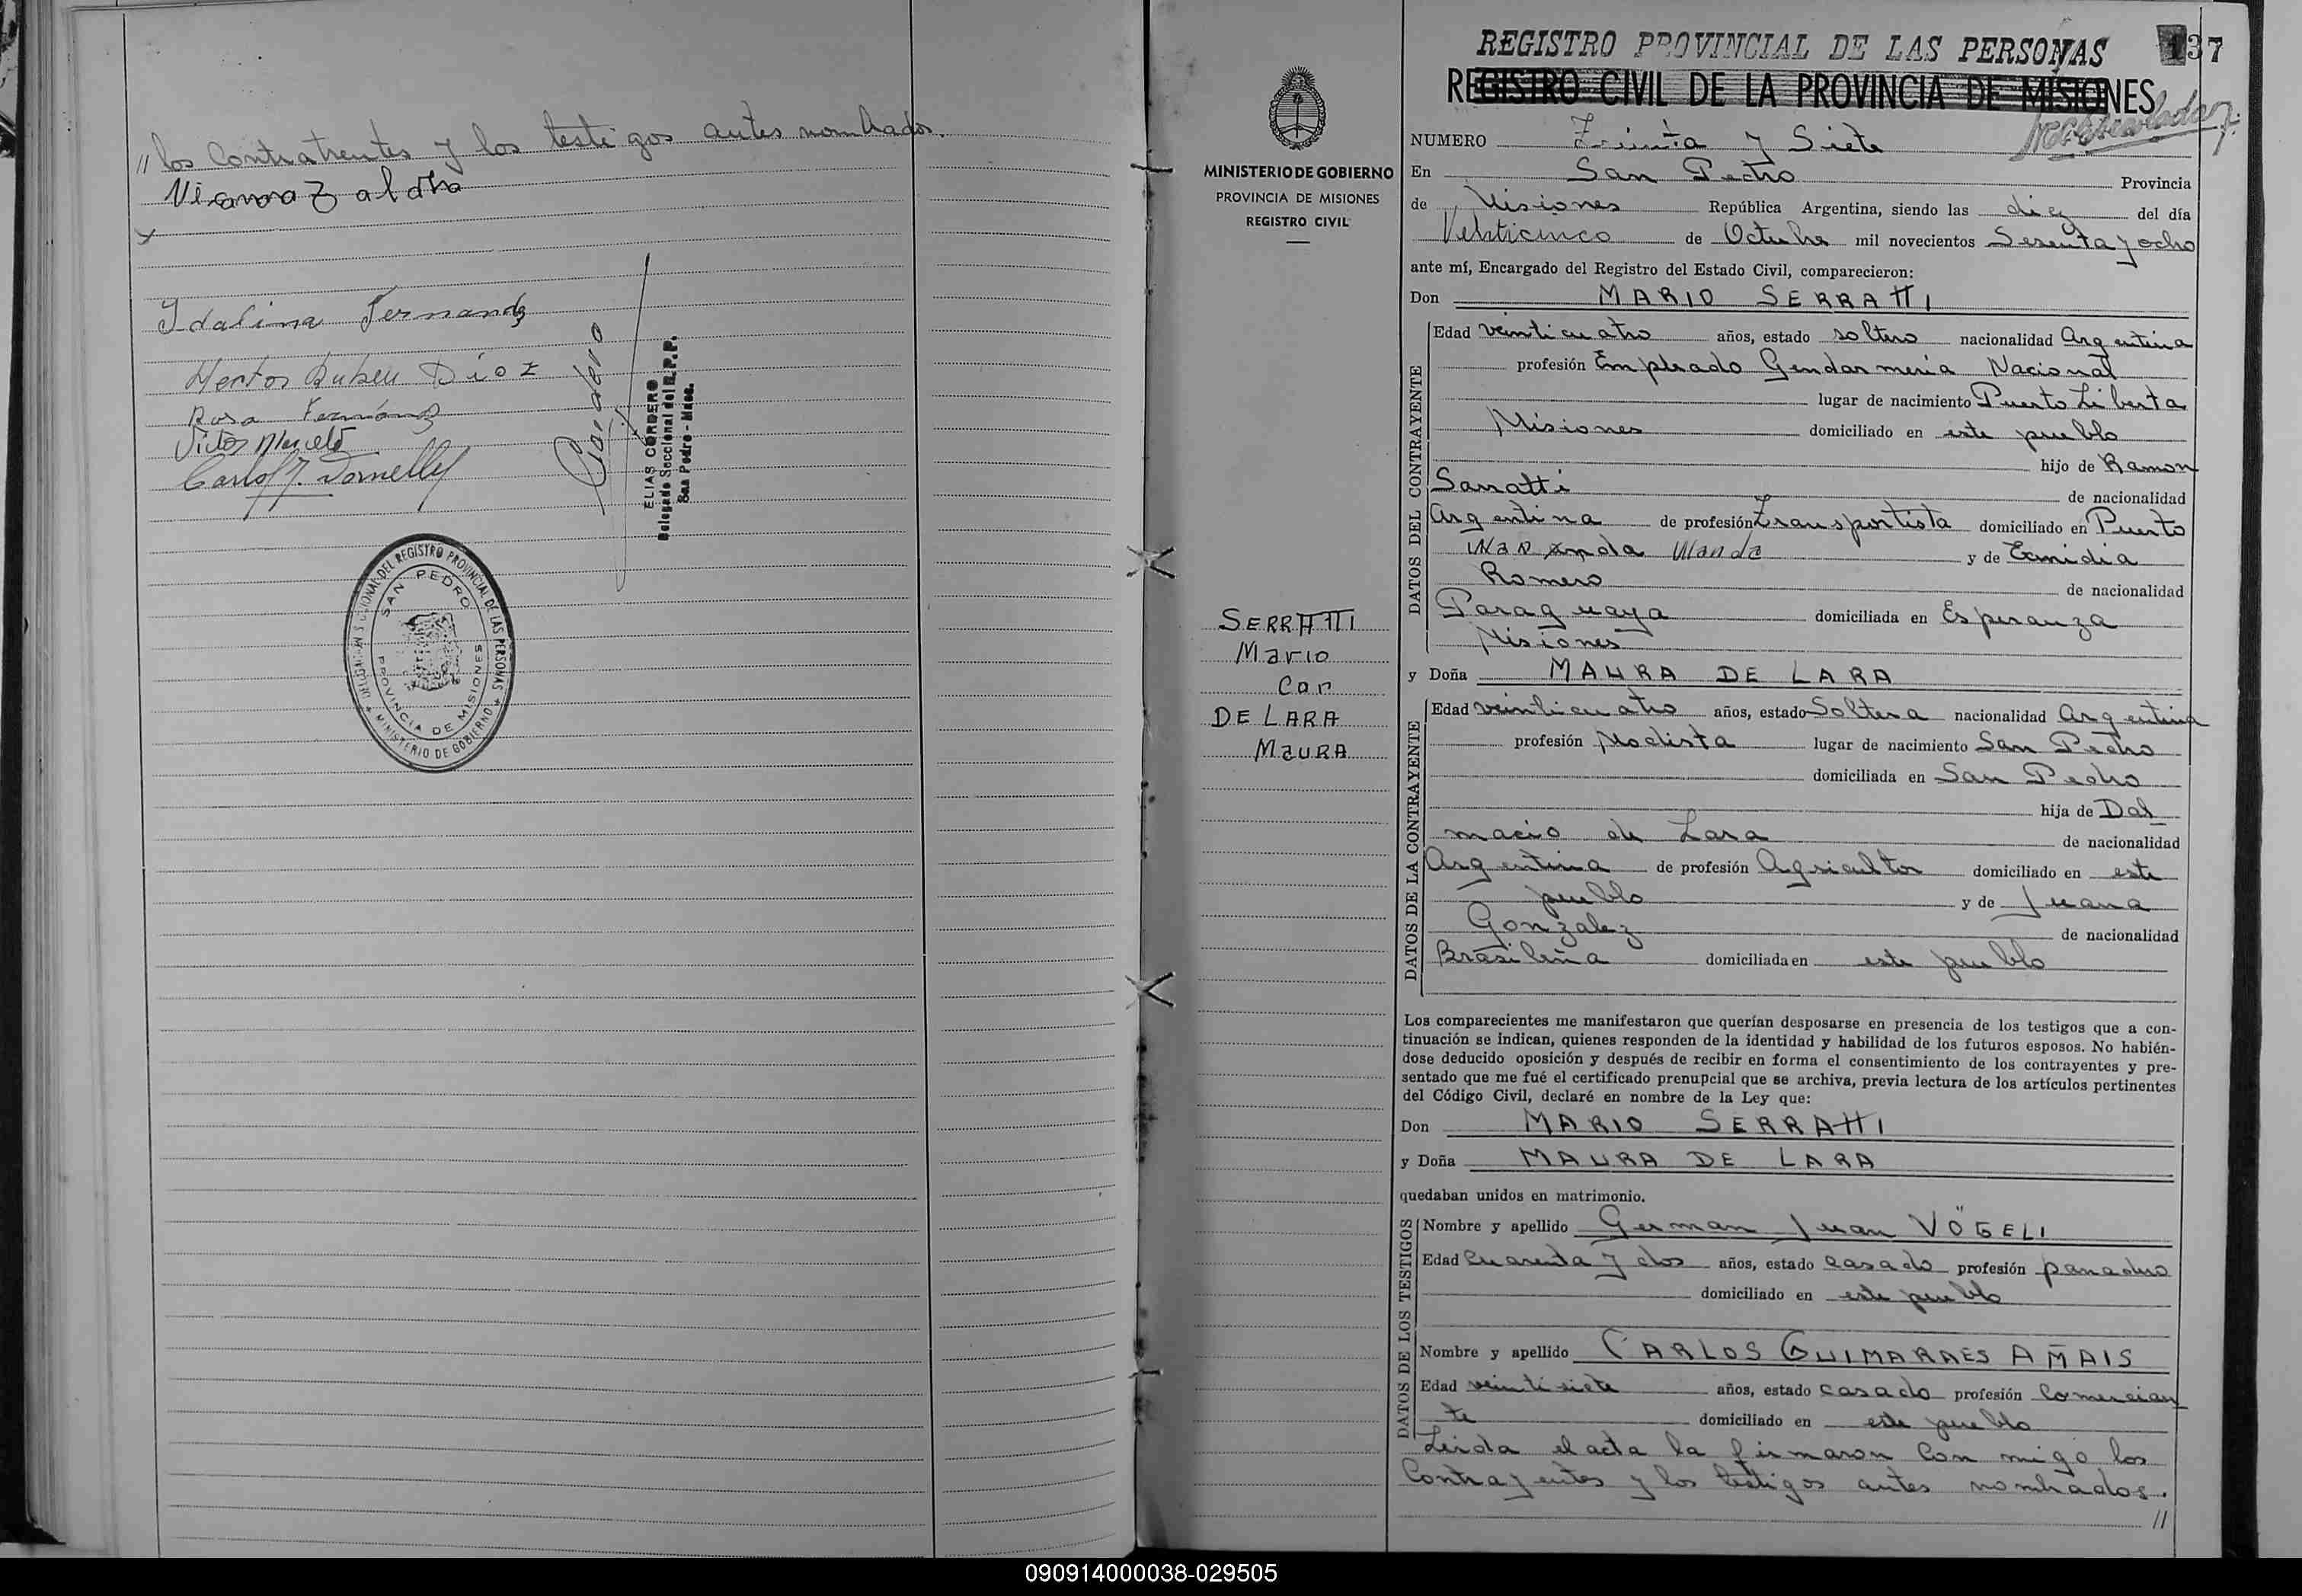 // los Contratrentes y los testigos antes nombrados.
Idalina Fernandez
Hector Ruben Dioz
Rosa Fernández
Victor Marcelo
Carlos J. Dornelly
Cordero
ELIAS CORDERO
Delegado Seccional del R.P.P.
San Pedro - Mnes.
DEL REGISTRO PROVINCIAL DE LAS PERSONAS
MINISTERIO DE GOBIERNO
SAN PEDRO
PROVINCIA DE MISIONES
MINISTERIO DE GOBIERNO
PROVINCIA DE MISIONES
REGISTRO CIVIL
SERRATTI
Mario
Con
DE LARA
MaURA
REGISTRO PROVINCIAL DE LAS PERSONAS
137
REGISTRO CIVIL DE LA PROVINCIA DE MISIONES
NUMERO Treinta y Siete
En San Pedro Provincia
de Misiones República Argentina, siendo las diez del día
Vehticinco de Octubre mil novecientos Sesenta y ocho
ante mí, Encargado del Registro del Estado Civil, comparecieron:
Don MARIO SERRATTI
DATOS DEL CONTRAYENTE
Edad veinticuatro años, estado soltero nacionalidad Argentina
profesión Empleado Gendarmeria Nacional
lugar de nacimiento Puerto Liberta
Misiones domiciliado en este pueblo
hijo de Ramon
Sarratti de nacionalidad
Argentina de profesión Transportista domiciliado en Puerto
Wanda y de Ermidia
Romero de nacionalidad
Paraguaya domiciliada en Esperanza
Misiones
y Doña MAURA DE LARA
DATOS DE LA CONTRAYENTE
Edad veinticuatro años, estado Soltera nacionalidad Argentina
profesión Modista lugar de nacimiento San Pedro
domiciliada en San Pedro
hija de Dal
macio de Lara de nacionalidad
Argentina de profesión Agricultor domiciliado en este
pueblo y de Juana
Gonzalez de nacionalidad
Brasileña domiciliada en este pueblo
Los comparecientes me manifestaron que querían desposarse en presencia de los testigos que a con-
tinuación se indican, quienes responden de la identidad y habilidad de los futuros esposos. No habién-
dose deducido oposición y después de recibir en forma el consentimiento de los contrayentes y pre-
sentado que me fué el certificado prenupcial que se archiva, previa lectura de los artículos pertinentes
del Código Civil, declaré en nombre de la Ley que:
Don MARIO SERRATTI
y Doña MAURA DE LARA
quedaban unidos en matrimonio.
DATOS DE LOS TESTIGOS
Nombre y apellido German Juan VÖGELI
Edad Cuarenta y dos años, estado casado profesión panadero
domiciliado en este pueblo
Nombre y apellido CARLOS GUIMARAES AMAIS
Edad veintisiete años, estado casado profesión Comercian
te domiciliado en este pueblo
Leida el acta la firmaron Con migo los
Contrayentes y los testigos antes nombrados.
//
090914000038-029505